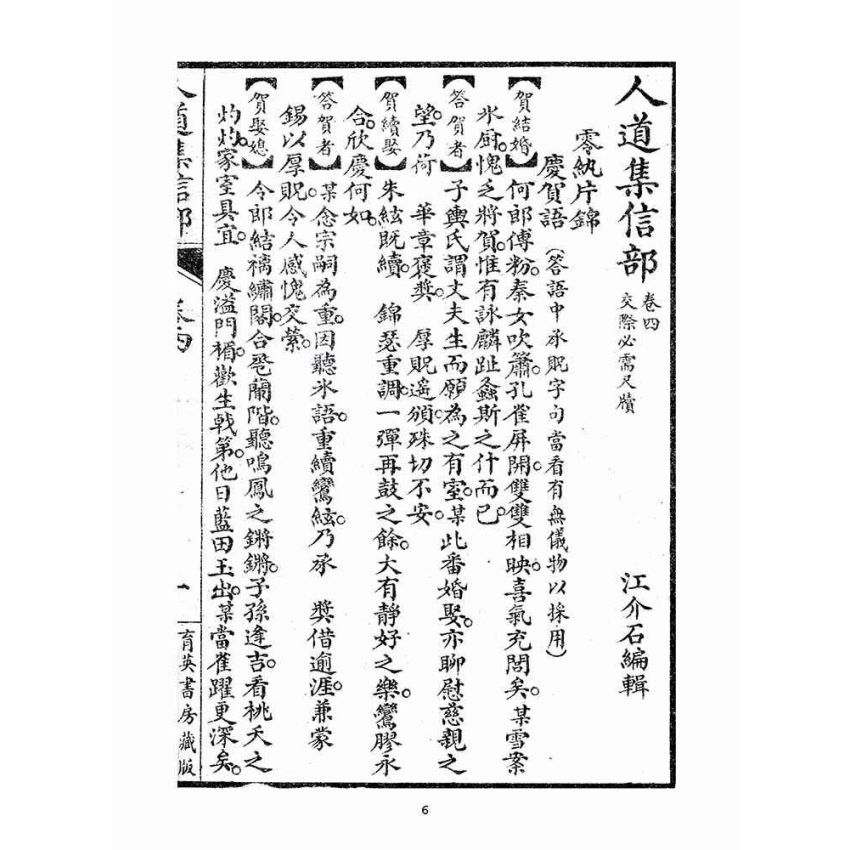 人道集信部 卷四 交際必需尺牘 江介石編輯
零紈片錦
慶賀語 (答語中承貺字句當看有無儀物以採用)
【賀結婚】何郎傅粉。秦女吹簫。孔雀屏開。雙雙相映。喜氣充閭矣。某雪案
氷厨。愧乏將賀。惟有詠麟趾螽斯之什而已。
【答賀者】子輿氏謂丈夫生而願為之有室。某此番婚娶。亦聊慰慈親之
望。乃荷 華章褒獎。 厚貺遙頒。殊切不安。
【賀續娶】朱絃既續。 錦瑟重調。一彈再鼓之餘。大有靜好之樂。鸞膠永
合。欣慶何如。
【答賀者】某念宗嗣為重。因聽氷語。重續鸞絃。乃承 獎借逾涯。兼蒙
錫以厚貺。令人感愧交縈。
【賀娶媳】令郎結褵繡閣。合卺蘭階。聽鳴鳳之鏘鏘。子孫逢吉。看桃夭之
灼灼。家室具宜。 慶溢門楣。歡生戟第。他日藍田玉出。某當雀躍更深矣。
人道集信部 卷四 一 育英書房藏版
6